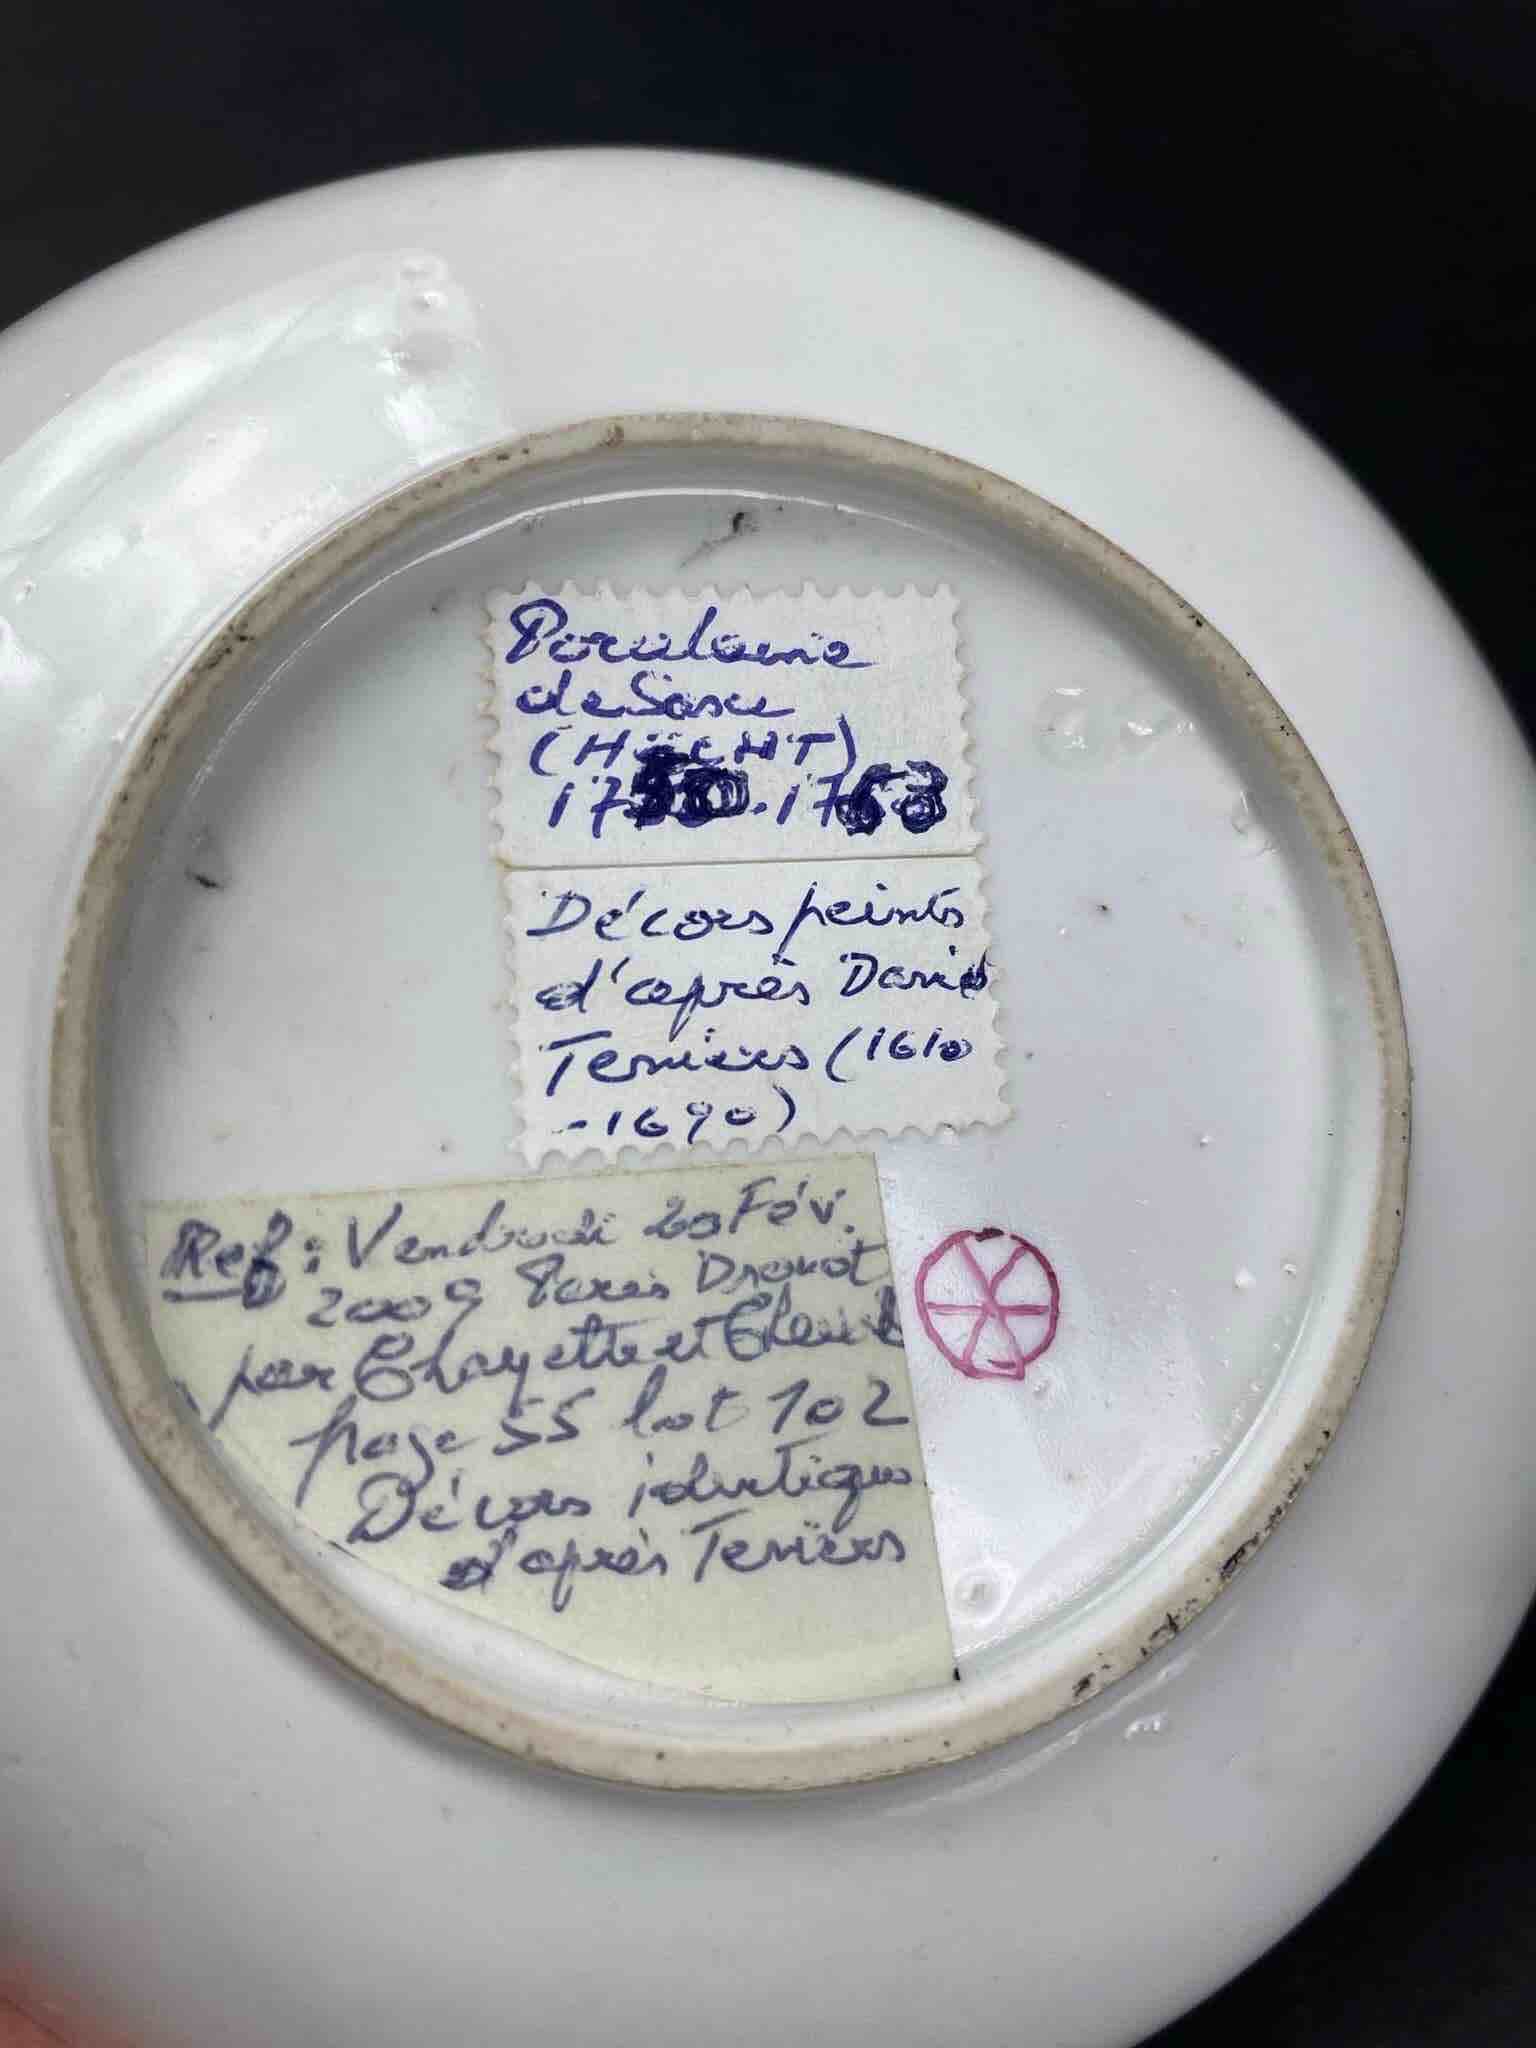 Porcelaine
de Saxe
(HÖCHT)
1750.1763
Décors peints
d'après David
Teniers (1610
-1690)
Ref: Vendredi 20 Fév.
2009 Paris Drouot
par Chayette et Cheval
page 55 lot 102
Décors identiques
d'après Teniers